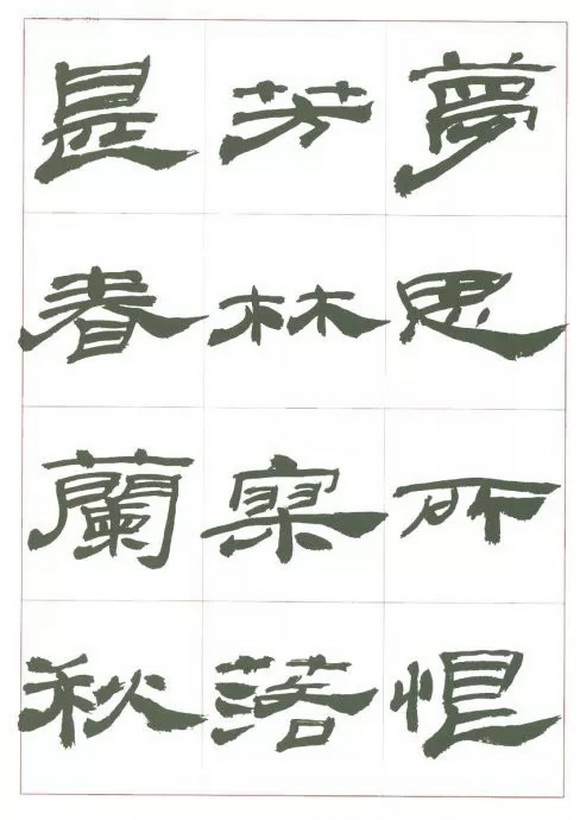 夢思所恨
芳林落
是春蘭秋